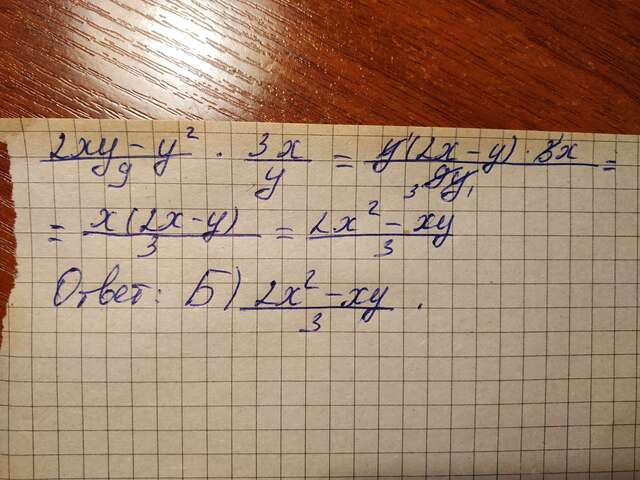 (2xy - y²)/9 · 3x/y = y(2x - y) · 3x/9y =
= x(2x - y)/3 = (2x² - xy)/3
Ответ: Б) (2x² - xy)/3 .